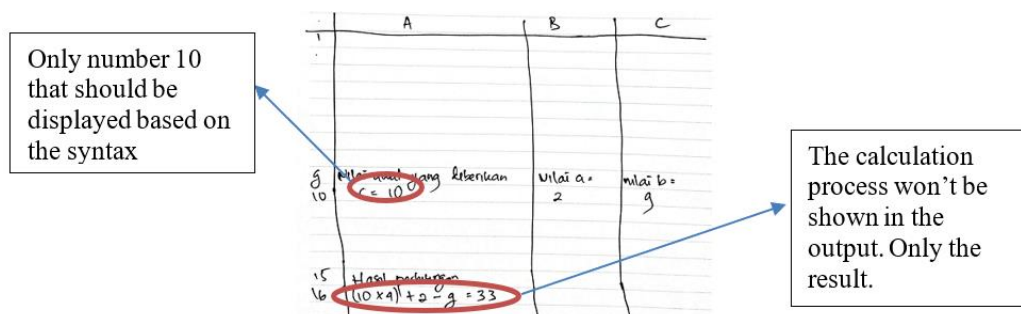 Only number 10
that should be
displayed based on
the syntax
A B C
1
9 Nilai awal yang diberikan Nilai a = nilai b =
10 c = 10 2 9
15 Hasil perhitungan
16 (10 x 4) + 2 - 9 = 33
The calculation
process won’t be
shown in the
output. Only the
result.